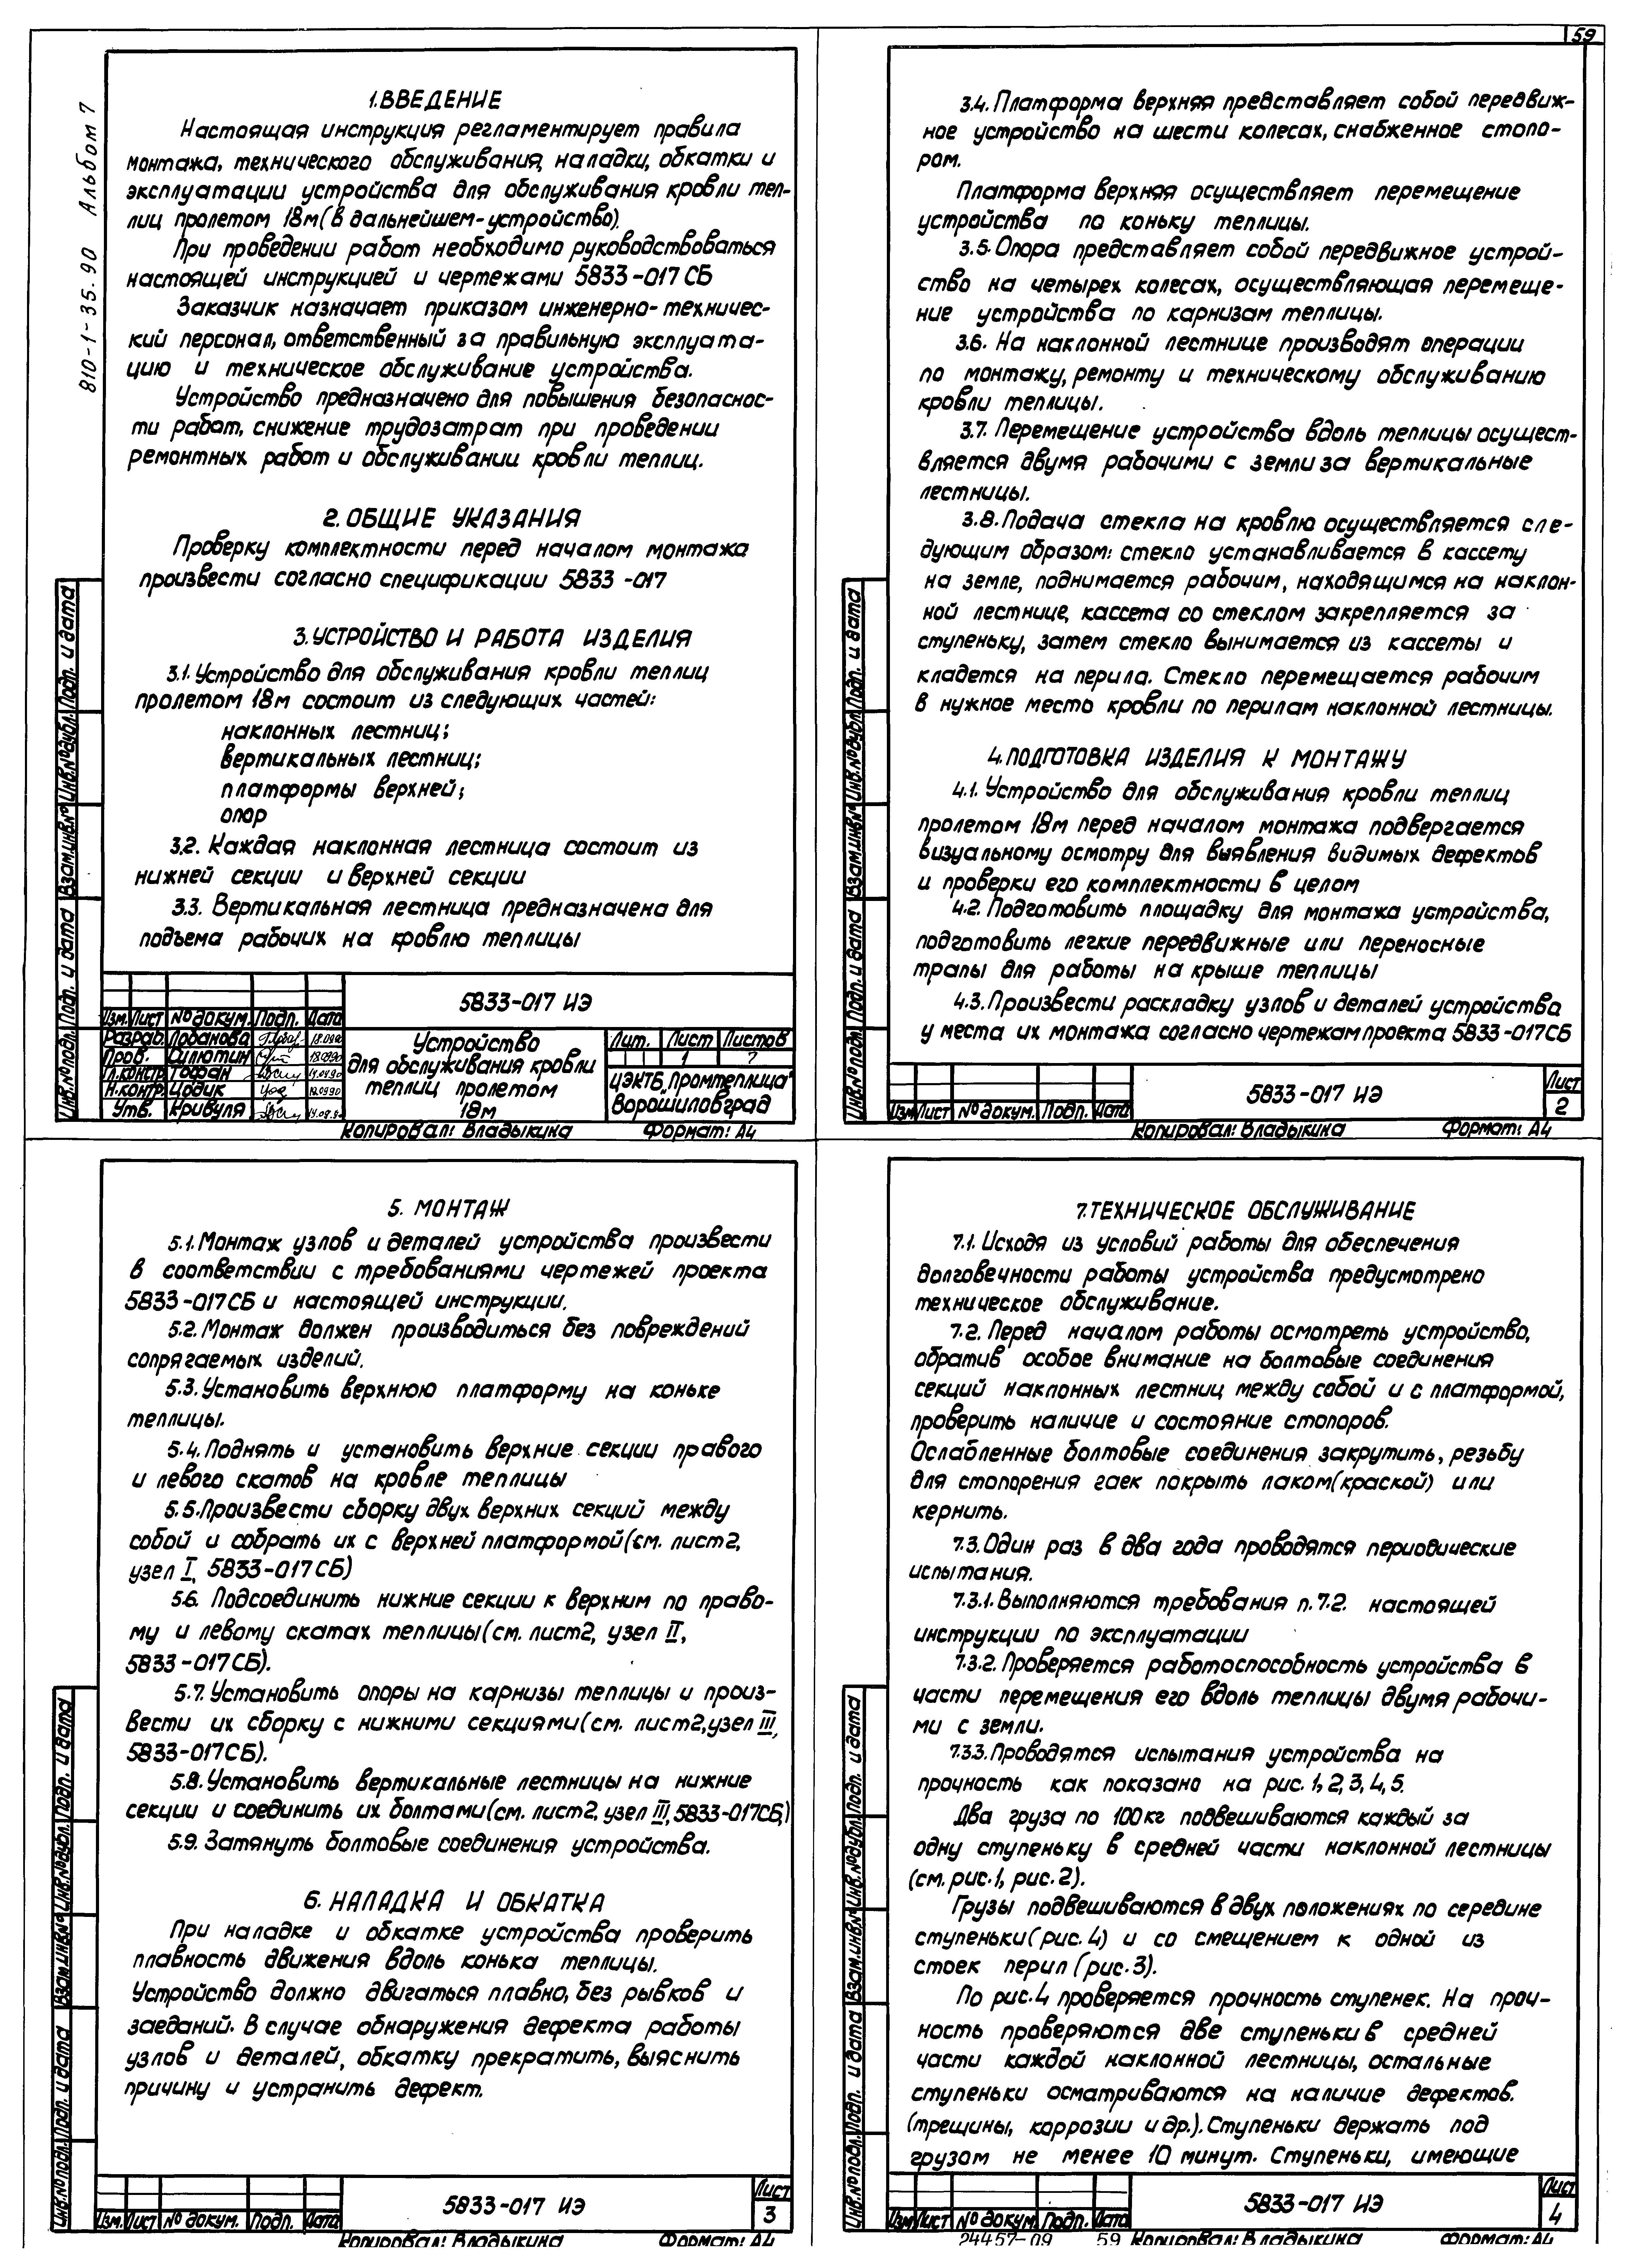 59
810-1-35.90 Альбом 7
1. ВВЕДЕНИЕ
Настоящая инструкция регламентирует правила
монтажа, технического обслуживания, наладки, обкатки и
эксплуатации устройства для обслуживания кровли теп-
лиц пролетом 18м (в дальнейшем-устройство).
При проведении работ необходимо руководствоваться
настоящей инструкцией и чертежами 5833-017 СБ
Заказчик назначает приказом инженерно-техничес-
кий персонал, ответственный за правильную эксплуата-
цию и техническое обслуживание устройства.
Устройство предназначено для повышения безопаснос-
ти работ, снижение трудозатрат при проведении
ремонтных работ и обслуживании кровли теплиц.
2. ОБЩИЕ УКАЗАНИЯ
Проверку комплектности перед началом монтажа
произвести согласно спецификации 5833-017
3. УСТРОЙСТВО И РАБОТА ИЗДЕЛИЯ
3.1. Устройство для обслуживания кровли теплиц
пролетом 18м состоит из следующих частей:
наклонных лестниц;
вертикальных лестниц;
платформы верхней;
опор
3.2. Каждая наклонная лестница состоит из
нижней секции и верхней секции
3.3. Вертикальная лестница предназначена для
подъема рабочих на кровлю теплицы
Инв.№подл. Подп. и дата Взам.инв.№ Инв.№дубл. Подп. и дата
5833-017 ИЭ
Изм. Лист № докум. Подп. Дата
Разраб. Лобанова 18.09.90
Пров. Силютин 18.09.90
Гл.констр. Гофан 14.09.90
Н.контр. Цодик 19.09.90
Утв. Кривуля
Устройство
для обслуживания кровли
теплиц пролетом
18м
Лит. Лист Листов
1 7
ЦЭКТБ „Промтеплица"
Ворошиловград
Копировал: Владыкина Формат: А4
3.4. Платформа верхняя представляет собой передвиж-
ное устройство на шести колесах, снабженное стопо-
ром.
Платформа верхняя осуществляет перемещение
устройства по коньку теплицы.
3.5. Опора представляет собой передвижное устрой-
ство на четырех колесах, осуществляющая перемеще-
ние устройства по карнизам теплицы.
3.6. На наклонной лестнице производят операции
по монтажу, ремонту и техническому обслуживанию
кровли теплицы.
3.7. Перемещение устройства вдоль теплицы осущест-
вляется двумя рабочими с земли за вертикальные
лестницы.
3.8. Подача стекла на кровлю осуществляется сле-
дующим образом: стекло устанавливается в кассету
на земле, поднимается рабочим, находящимся на наклон-
ной лестнице, кассета со стеклом закрепляется за
ступеньку, затем стекло вынимается из кассеты и
кладется на перила. Стекло перемещается рабочим
в нужное место кровли по перилам наклонной лестницы.
4. ПОДГОТОВКА ИЗДЕЛИЯ К МОНТАЖУ
4.1. Устройство для обслуживания кровли теплиц
пролетом 18м перед началом монтажа подвергается
визуальному осмотру для выявления видимых дефектов
и проверки его комплектности в целом
4.2. Подготовить площадку для монтажа устройства,
подготовить легкие передвижные или переносные
трапы для работы на крыше теплицы
4.3. Произвести раскладку узлов и деталей устройства
у места их монтажа согласно чертежам проекта 5833-017СБ
Инв.№подл. Подп. и дата Взам.инв.№ Инв.№дубл. Подп. и дата
Изм Лист № докум. Подп. Дата
5833-017 ИЭ
Лист
2
Копировал: Владыкина Формат: А4
5. МОНТАЖ
5.1. Монтаж узлов и деталей устройства произвести
в соответствии с требованиями чертежей проекта
5833-017СБ и настоящей инструкции.
5.2. Монтаж должен производиться без повреждений
сопрягаемых изделий.
5.3. Установить верхнюю платформу на коньке
теплицы.
5.4. Поднять и установить верхние секции правого
и левого скатов на кровле теплицы
5.5. Произвести сборку двух верхних секций между
собой и собрать их с верхней платформой (см. лист 2,
узел I, 5833-017СБ)
5.6. Подсоединить нижние секции к верхним по право-
му и левому скатах теплицы (см. лист 2, узел II,
5833-017СБ).
5.7. Установить опоры на карнизы теплицы и произ-
вести их сборку с нижними секциями (см. лист 2, узел III,
5833-017СБ).
5.8. Установить вертикальные лестницы на нижние
секции и соединить их болтами (см. лист 2, узел III, 5833-017СБ)
5.9. Затянуть болтовые соединения устройства.
6. НАЛАДКА И ОБКАТКА
При наладке и обкатке устройства проверить
плавность движения вдоль конька теплицы.
Устройство должно двигаться плавно, без рывков и
заеданий. В случае обнаружения дефекта работы
узлов и деталей, обкатку прекратить, выяснить
причину и устранить дефект.
Инв.№подл. Подп. и дата Взам.инв.№ Инв.№дубл. Подп. и дата
Изм. Лист № докум. Подп. Дата
5833-017 ИЭ
Лист
3
Копировал: Владыкина Формат: А4
7. ТЕХНИЧЕСКОЕ ОБСЛУЖИВАНИЕ
7.1. Исходя из условий работы для обеспечения
долговечности работы устройства предусмотрено
техническое обслуживание.
7.2. Перед началом работы осмотреть устройство,
обратив особое внимание на болтовые соединения
секций наклонных лестниц между собой и с платформой,
проверить наличие и состояние стопоров.
Ослабленные болтовые соединения закрутить, резьбу
для стопорения гаек покрыть лаком (краской) или
кернить.
7.3. Один раз в два года проводятся периодические
испытания.
7.3.1. Выполняются требования п.7.2. настоящей
инструкции по эксплуатации
7.3.2. Проверяется работоспособность устройства в
части перемещения его вдоль теплицы двумя рабочи-
ми с земли.
7.3.3. Проводятся испытания устройства на
прочность как показано на рис. 1, 2, 3, 4, 5.
Два груза по 100 кг подвешиваются каждый за
одну ступеньку в средней части наклонной лестницы
(см. рис. 1, рис. 2).
Грузы подвешиваются в двух положениях по середине
ступеньки (рис. 4) и со смещением к одной из
стоек перил (рис. 3).
По рис. 4 проверяется прочность ступенек. На проч-
ность проверяются две ступеньки в средней
части каждой наклонной лестницы, остальные
ступеньки осматриваются на наличие дефектов.
(трещины, коррозии и др.). Ступеньки держать под
грузом не менее 10 минут. Ступеньки, имеющие
Инв.№подл. Подп. и дата Взам.инв.№ Инв.№дубл. Подп. и дата
Изм Лист № докум. Подп. Дата
5833-017 ИЭ
Лист
4
24457-09 59 Копировал: Владыкина Формат: А4